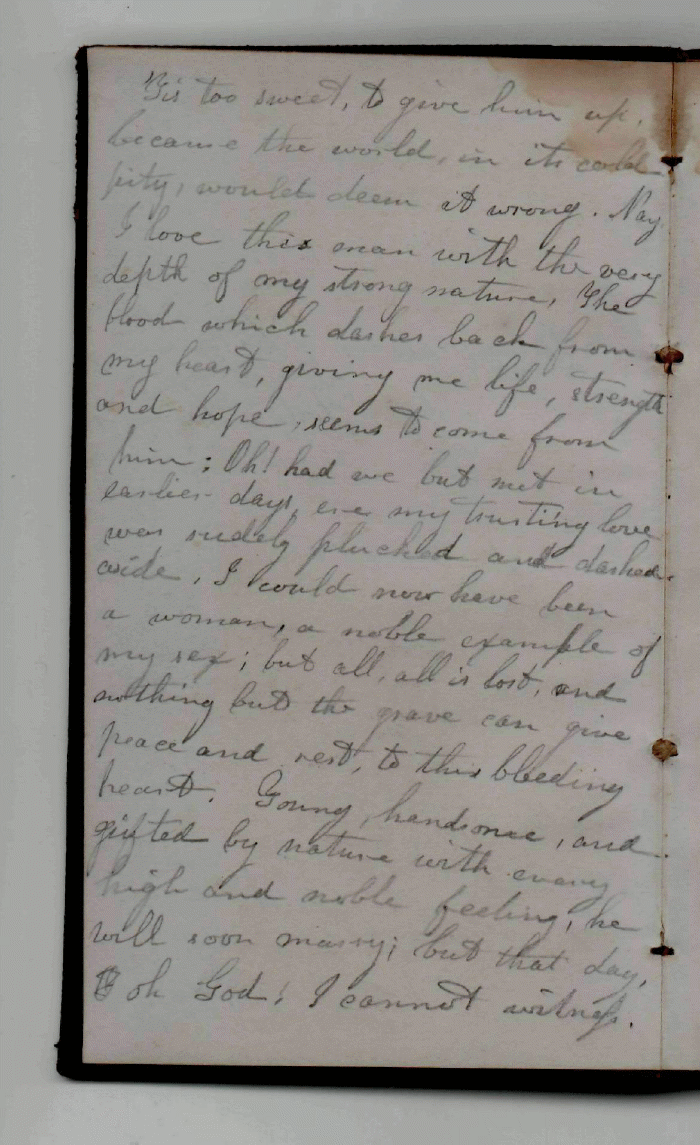 'Tis too sweet, to give him up,
because the world, in its cold
pity, would deem it wrong. Nay
I love this man with the very
depth of my strong nature, The
blood which dashes back from
my heart, giving me life, strength
and hope, seems to come from
him; Oh! had we but met in
earlier days, ere my trusting love
was rudely plucked and dashed
aside, I could now have been
a woman, a noble example of
my sex; but all, all is lost, and
nothing but the grave can give
peace and rest, to this bleeding
heart. Young, handsome, and
gifted by nature with every
high and noble feeling, he
will soon marry; but that day,
oh God! I cannot witness.